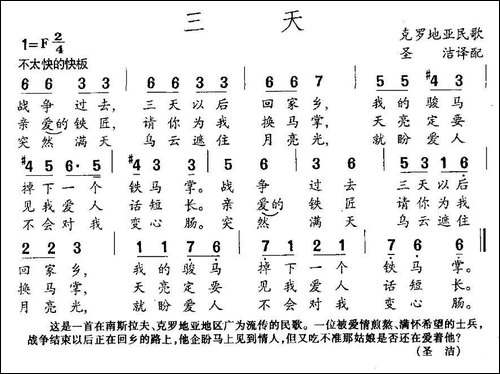 三 天
1=F 2/4
克罗地亚民歌
圣 洁译配
不太快的快板
6 6 3 3 | 6 6 6 | 6 6 7 | 5 5 #4 3 |
战 争 过 去, 三 天 以 后 回 家 乡, 我 的 骏 马
亲 爱的 铁 匠, 请 你 为 我 换 马 掌, 天 亮 定 要
突 然 满 天 乌 云 遮 住 月 亮 光, 就 盼 爱 人
#4 5 6· 5 | #4 3 3 | 5 5 6 6 | 5 3 1 6 |
掉 下 一 个 铁 马 掌。 战 争 过 去 三 天 以 后
见 我 爱 人 话 短 长。 亲 爱的 铁 匠 请 你 为 我
不 会 对 我 变 心 肠。 突 然 满 天 乌 云 遮 住
2 2 3 | 1 1 7 6 | 7 1 2 1 | 7 6 6 ‖
回 家 乡, 我 的 骏 马 掉 下 一 个 铁 马 掌。
换 马 掌, 天 亮 定 要 见 我 爱 人 话 短 长。
月 亮 光, 就 盼 爱 人 不 会 对 我 变 心 肠。
这是一首在南斯拉夫、克罗地亚地区广为流传的民歌。一位被爱情煎熬、满怀希望的士兵,
战争结束以后正在回乡的路上,他企盼马上见到情人,但又吃不准那姑娘是否还在爱着他?
(圣 洁)